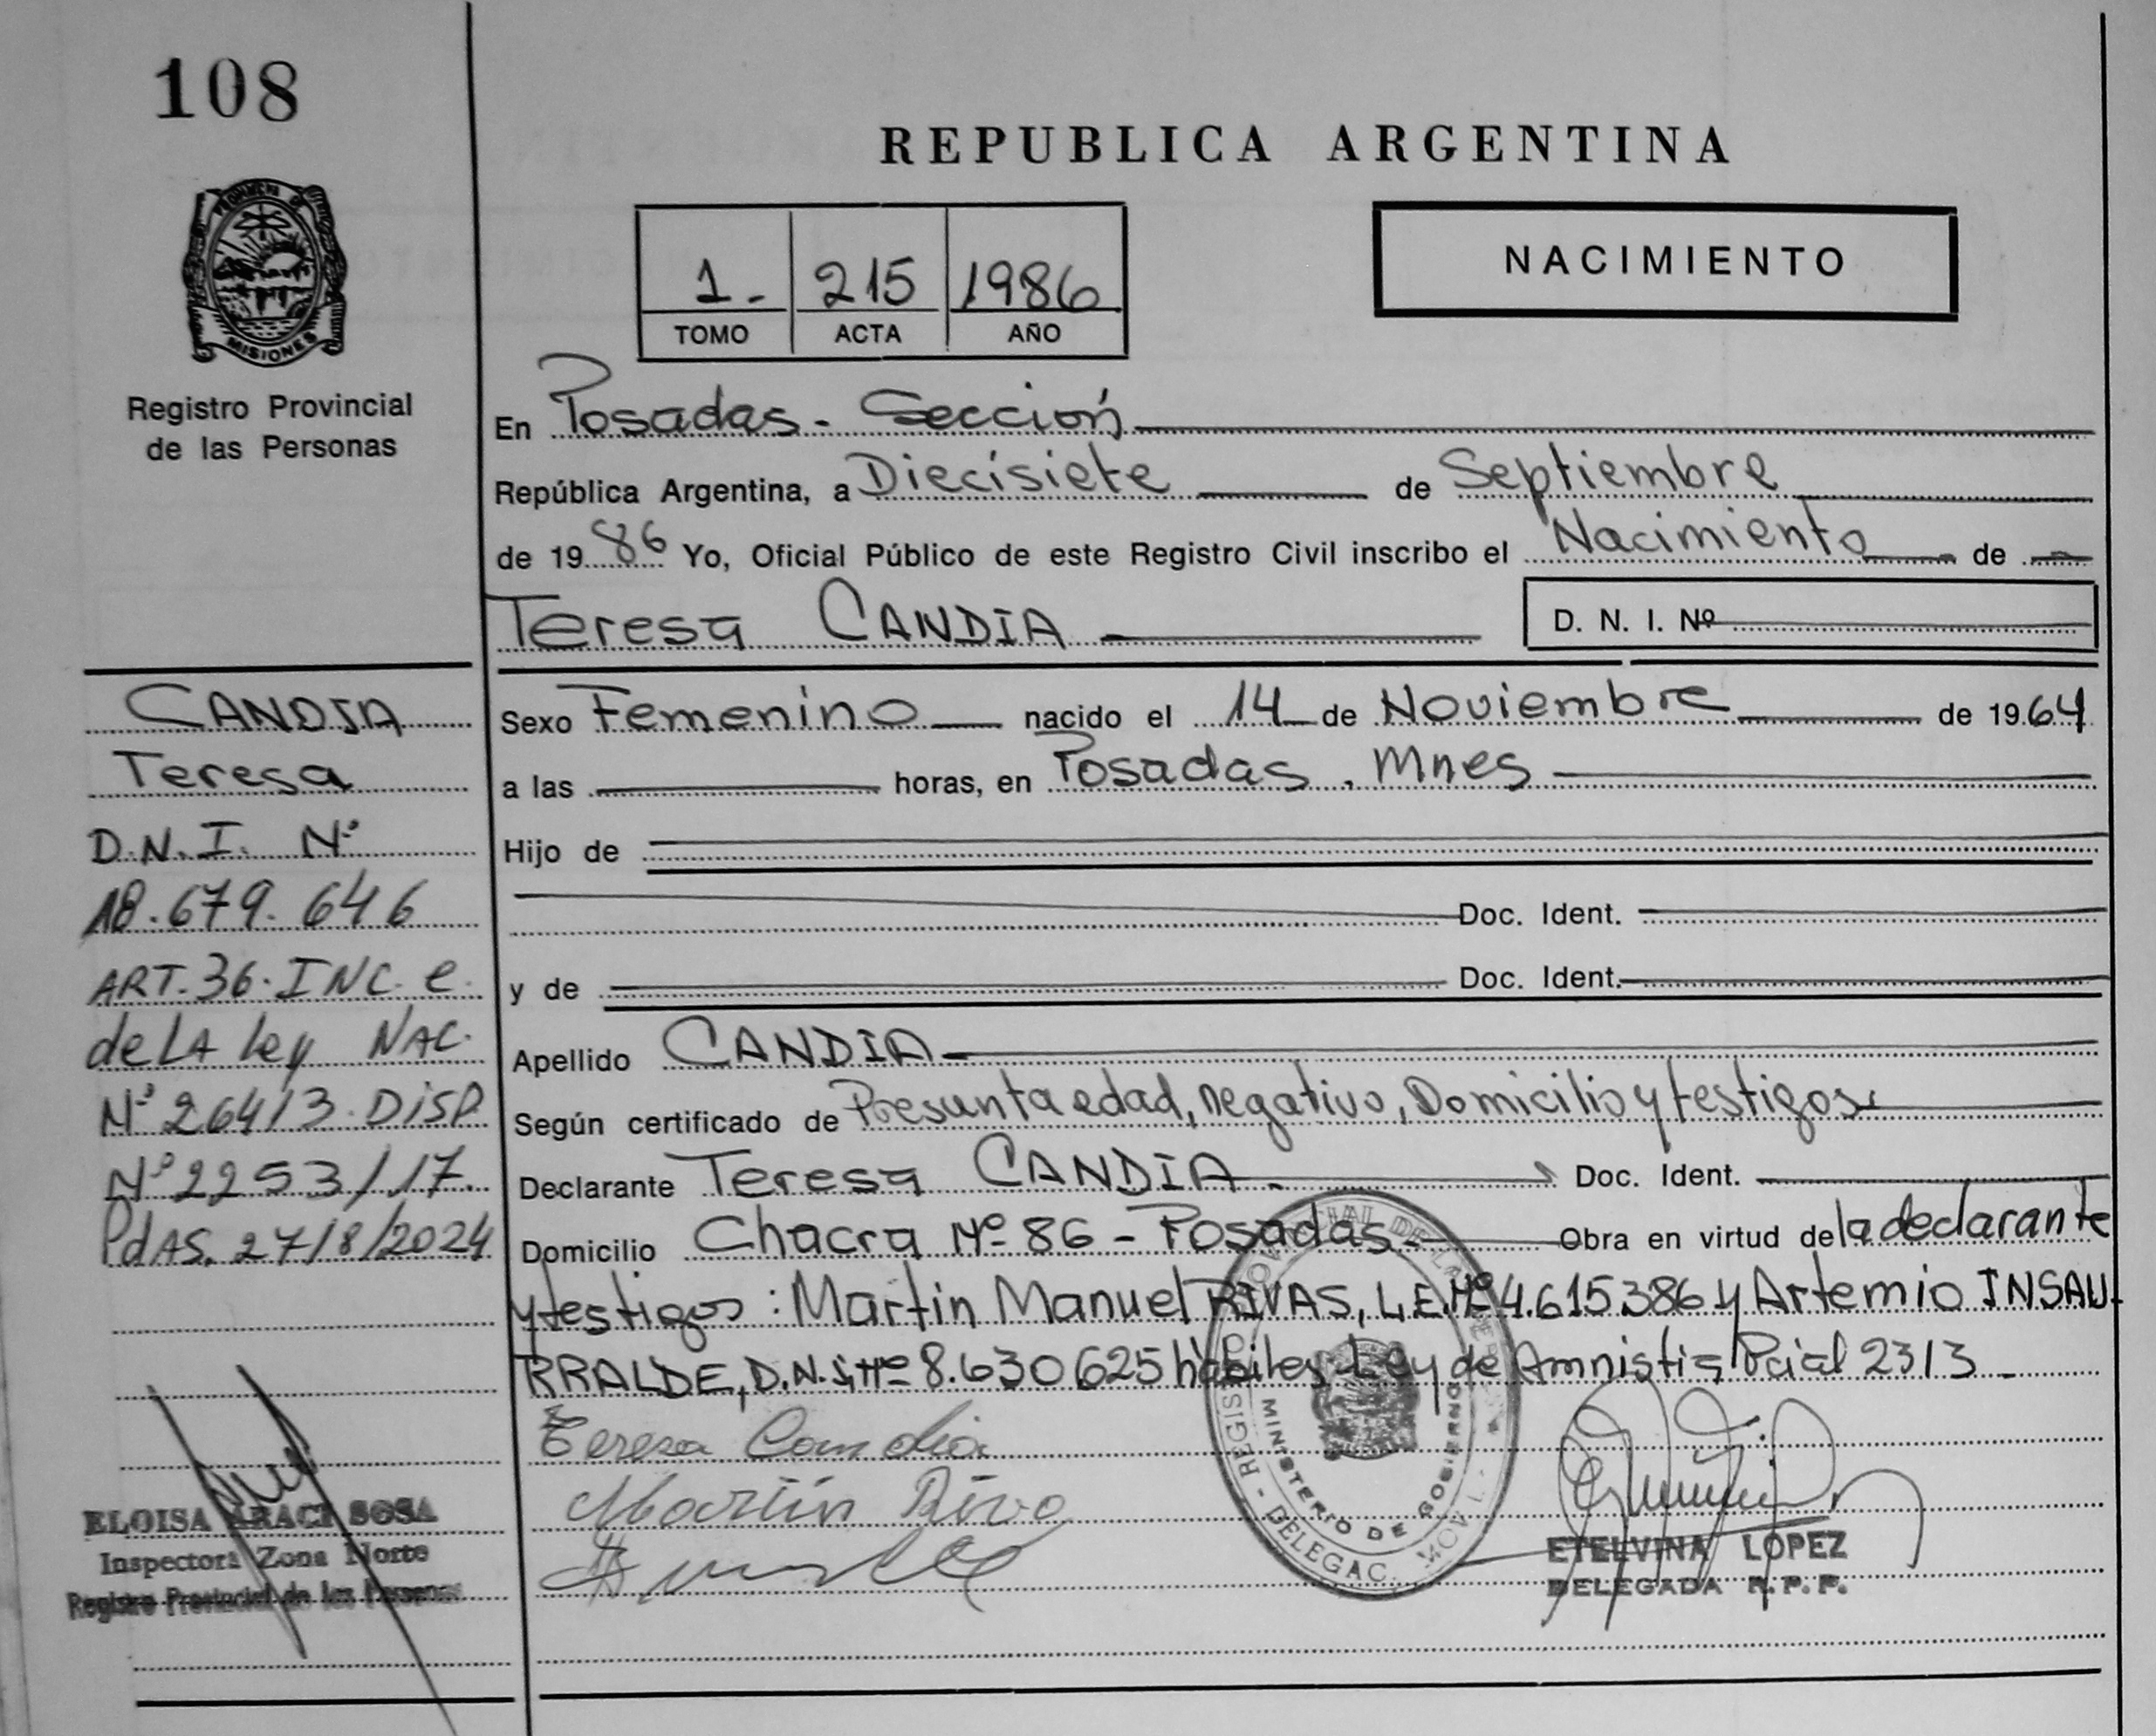 108
PROVINCIA DE
MISIONES
Registro Provincial
de las Personas
REPUBLICA ARGENTINA
1.- 215 1986
TOMO ACTA AÑO
NACIMIENTO
En Posadas - Sección
República Argentina, a Diecisiete de Septiembre
de 1986 Yo, Oficial Público de este Registro Civil inscribo el Nacimiento de
Teresa CANDIA
D. N. I. Nº
Sexo Femenino nacido el 14 de Noviembre de 1964
a las horas, en Posadas. Mnes
Hijo de
Doc. Ident.
y de Doc. Ident.
Apellido CANDIA
Según certificado de Presunta edad, negativo, Domicilio y testigos.
Declarante Teresa CANDIA. Doc. Ident.
Domicilio Chacra Nº 86 - Posadas.- Obra en virtud de la declarante
y testigos: Martin Manuel RIVAS, L.E. Nº 4.615386 y Artemio INSAU-
RRALDE, D.N.I. Nº 8.630625 hábiles - Ley de Amnistia Pcial 2313
Teresa Candia
Martin Riva
MINISTERIO DE GOBIERNO
ETELVINA LOPEZ
DELEGADA R. P. P.
CANDIA
Teresa
D.N.I. Nº
18.679.646
ART. 36. INC. e.
de LA Ley NAC.
Nº 26413. DISP.
Nº 2253/17.
PdAS. 27/8/2024
ELOISA ARACI SOSA
Inspectora Zona Norte
Registro Provincial de las Personas